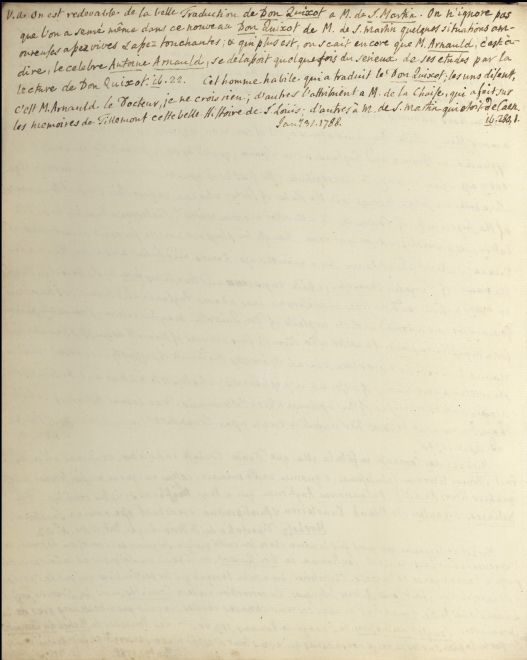 V. de On est redevable de la belle Traduction de Don Quixot a M. de S. Martin. On n'ignore pas
que l'on a semé même dans ce nouveau Don Quixot de M. de S. Martin quelques situations am-
oureuses assez vives & assez touchantes; & qui plus est, on scait encore que M. Arnauld, c'est à
dire, le celebre Antoine Arnauld, se delassoit quelque fois du serieux de ses etudes par la
lecture de Don Quixot. ib. 22. Cet homme habile qui a traduit le Don Quixot; les uns disent,
c'est M. Arnauld le Docteur, je ne crois rien; d'autres l'attribuent a M. de la Chaise, qui a fait, sur
les memoires de Tillemont cette belle Histoire de S. Louis; d'autres à M. de S. Martin qui étoit de Caen.
ib. 280, 1.
Jan. 31. 1788.